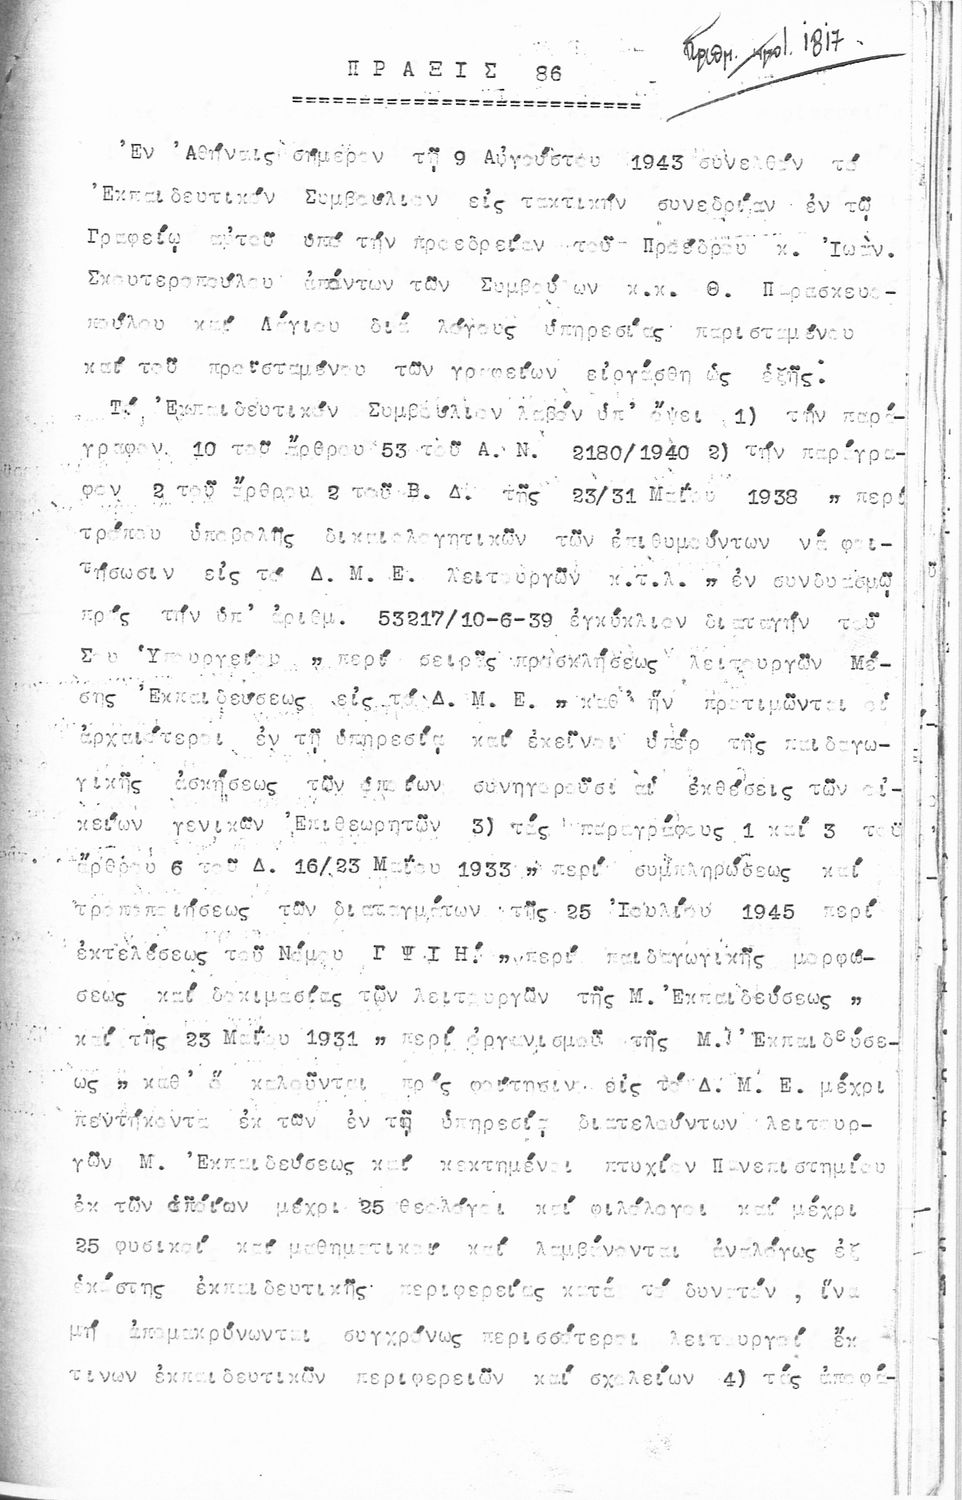 Ἀριθμ. πρωτ. 1817.
ΠΡΑΞΙΣ 86
Ἐν Ἀθήναις σήμερον τῇ 9 Αὐγούστου 1943 συνελθόν τό
Ἐκπαιδευτικόν Συμβούλιον εἰς τακτικήν συνεδρίαν ἐν τῷ
Γραφείῳ αὐτοῦ ὑπό τήν προεδρείαν τοῦ Προέδρου κ. Ἰωάν.
Σκουτεροπούλου ἁπάντων τῶν Συμβούλων κ.κ. Θ. Παρασκευο-
πούλου καί Λόγιου διά λόγους ὑπηρεσίας παρισταμένου
καί τοῦ προϊσταμένου τῶν γραφείων εἰργάσθη ὡς ἑξῆς:
Τό Ἐκπαιδευτικόν Συμβούλιον λαβόν ὑπ' ὄψει 1) τήν παρά-
γραφον 10 τοῦ ἄρθρου 53 τοῦ Α. Ν. 2180/1940 2) τήν παράγρα-
φον 2 τοῦ ἄρθρου 2 τοῦ Β. Δ. τῆς 23/31 Μαΐου 1938 " περί
τρόπου ὑποβολῆς δικαιολογητικῶν τῶν ἐπιθυμούντων νά φοι-
τήσωσιν εἰς τό Δ. Μ. Ε. λειτουργῶν κ.τ.λ. " ἐν συνδυασμῷ
πρός τήν ὑπ' ἀριθμ. 53217/10-6-39 ἐγκύκλιον διαταγήν τοῦ
Σου Ὑπουργείου " περί σειρᾶς προσκλήσεως λειτουργῶν Μέ-
σης Ἐκπαιδεύσεως εἰς τό Δ. Μ. Ε. " καθ' ἥν προτιμῶνται οἱ
ἀρχαιότεροι ἐν τῇ ὑπηρεσίᾳ καί ἐκεῖνοι ὑπέρ τῆς παιδαγω-
γικῆς ἀσκήσεως τῶν ὁποίων συνηγοροῦσι αἱ ἐκθέσεις τῶν οἰ-
κείων γενικῶν Ἐπιθεωρητῶν 3) τάς παραγράφους 1 καί 3 τοῦ
ἄρθρου 6 τοῦ Δ. 16/23 Μαΐου 1933 " περί συμπληρώσεως καί
τροποποιήσεως τῶν διαταγμάτων τῆς 25 Ἰουλίου 1945 περί
ἐκτελέσεως τοῦ Νόμου Γ Ψ Ι Η! " περί παιδαγωγικῆς μορφώ-
σεως καί δοκιμασίας τῶν λειτουργῶν τῆς Μ. Ἐκπαιδεύσεως "
καί τῆς 23 Μαΐου 1931 " περί ὀργανισμοῦ τῆς Μ. Ἐκπαιδεύσε-
ως " καθ' ἅ καλοῦνται πρός φοίτησιν εἰς τό Δ. Μ. Ε. μέχρι
πεντήκοντα ἐκ τῶν ἐν τῇ ὑπηρεσίᾳ διατελούντων λειτουρ-
γῶν Μ. Ἐκπαιδεύσεως καί κεκτημένοι πτυχίον Πανεπιστημίου
ἐκ τῶν ὁποίων μέχρι 25 θεολόγοι καί φιλόλογοι καί μέχρι
25 φυσικοί καί μαθηματικοί καί λαμβάνονται ἀναλόγως ἐξ
ἑκάστης ἐκπαιδευτικῆς περιφερείας κατά τό δυνατόν , ἵνα
μή ἀπομακρύνωνται συγχρόνως περισσότεροι λειτουργοί ἔκ
τινων ἐκπαιδευτικῶν περιφερειῶν καί σχολείων 4) τάς ἀποφά-